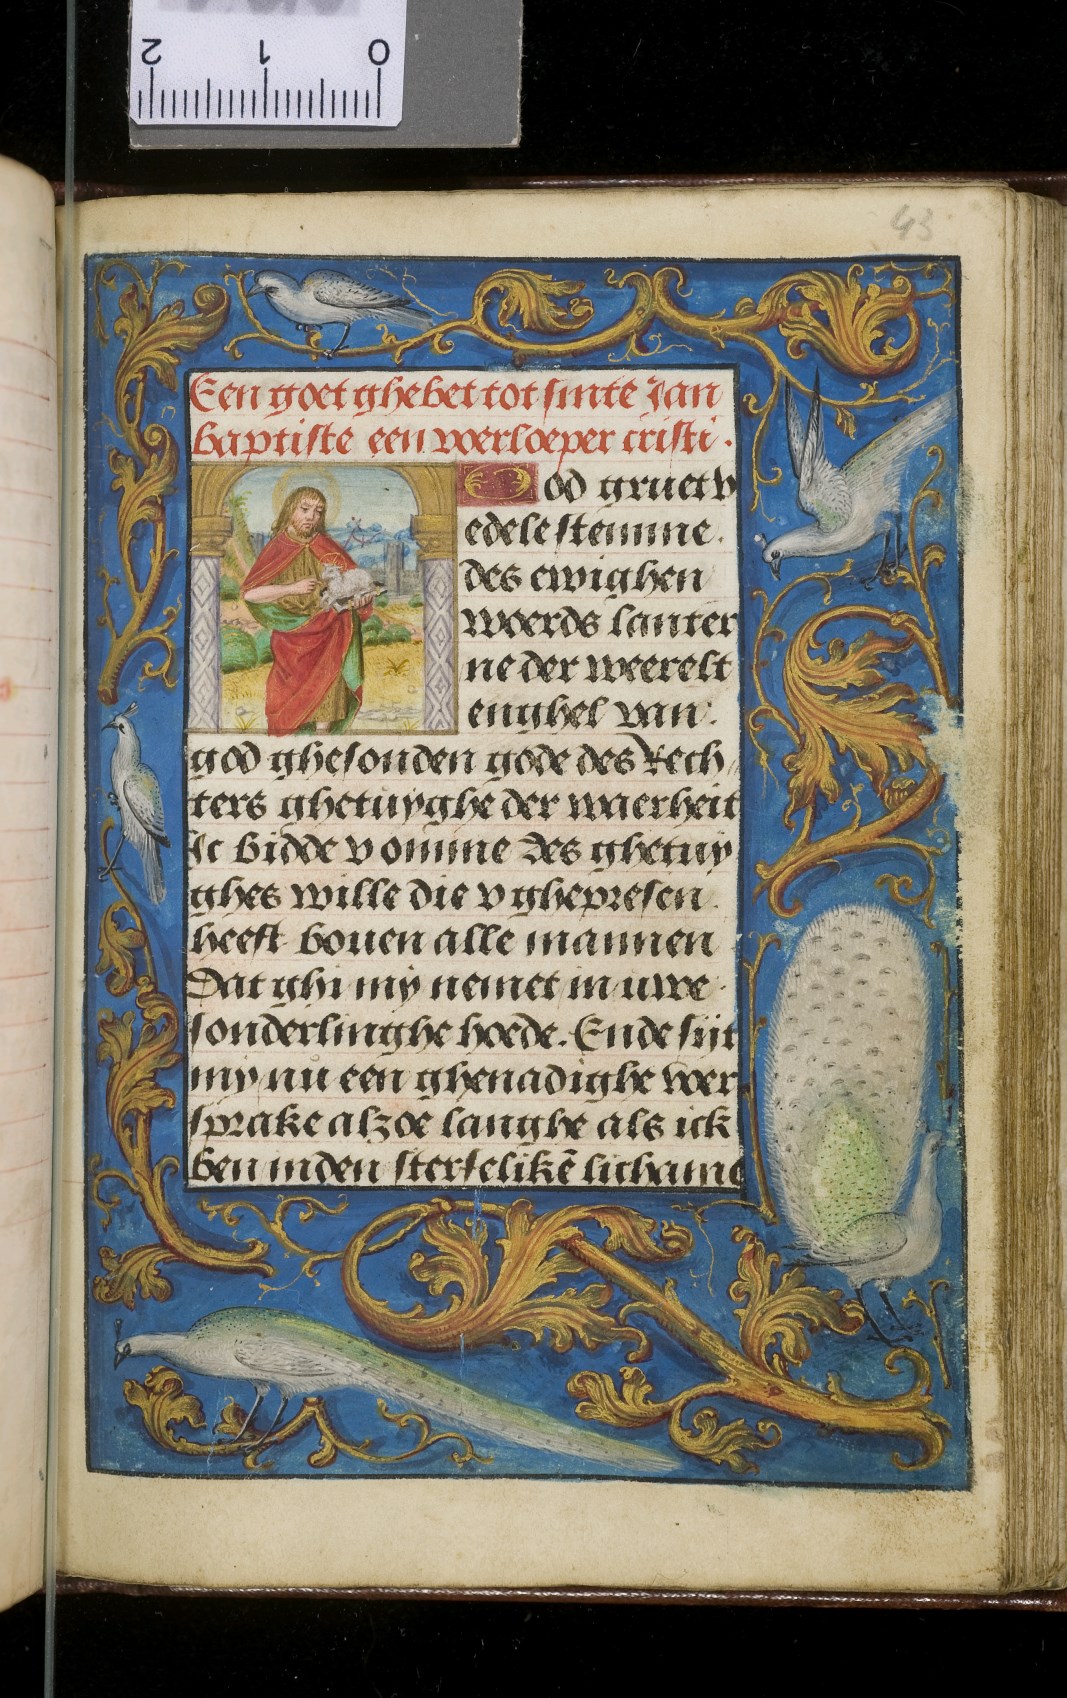 2 1 0
43
Een goet ghebet tot sinte Jan
baptiste een voerloeper cristi.
God gruet v
edele stemme.
des ewighen
woerds lanter
ne der weerelt
enghel van
god ghesonden gode des Rech
ters ghetuyghe der waerheit
Ic bidde v omme des ghetuy
ghes wille die v ghepresen
heeft bouen alle mannen
Dat ghi my nemet in uwe
sonderlinghe hoede. Ende sijt
my nu een ghenadighe ver
sprake alzoe langhe als ick
ben in den sterfelikē lichame